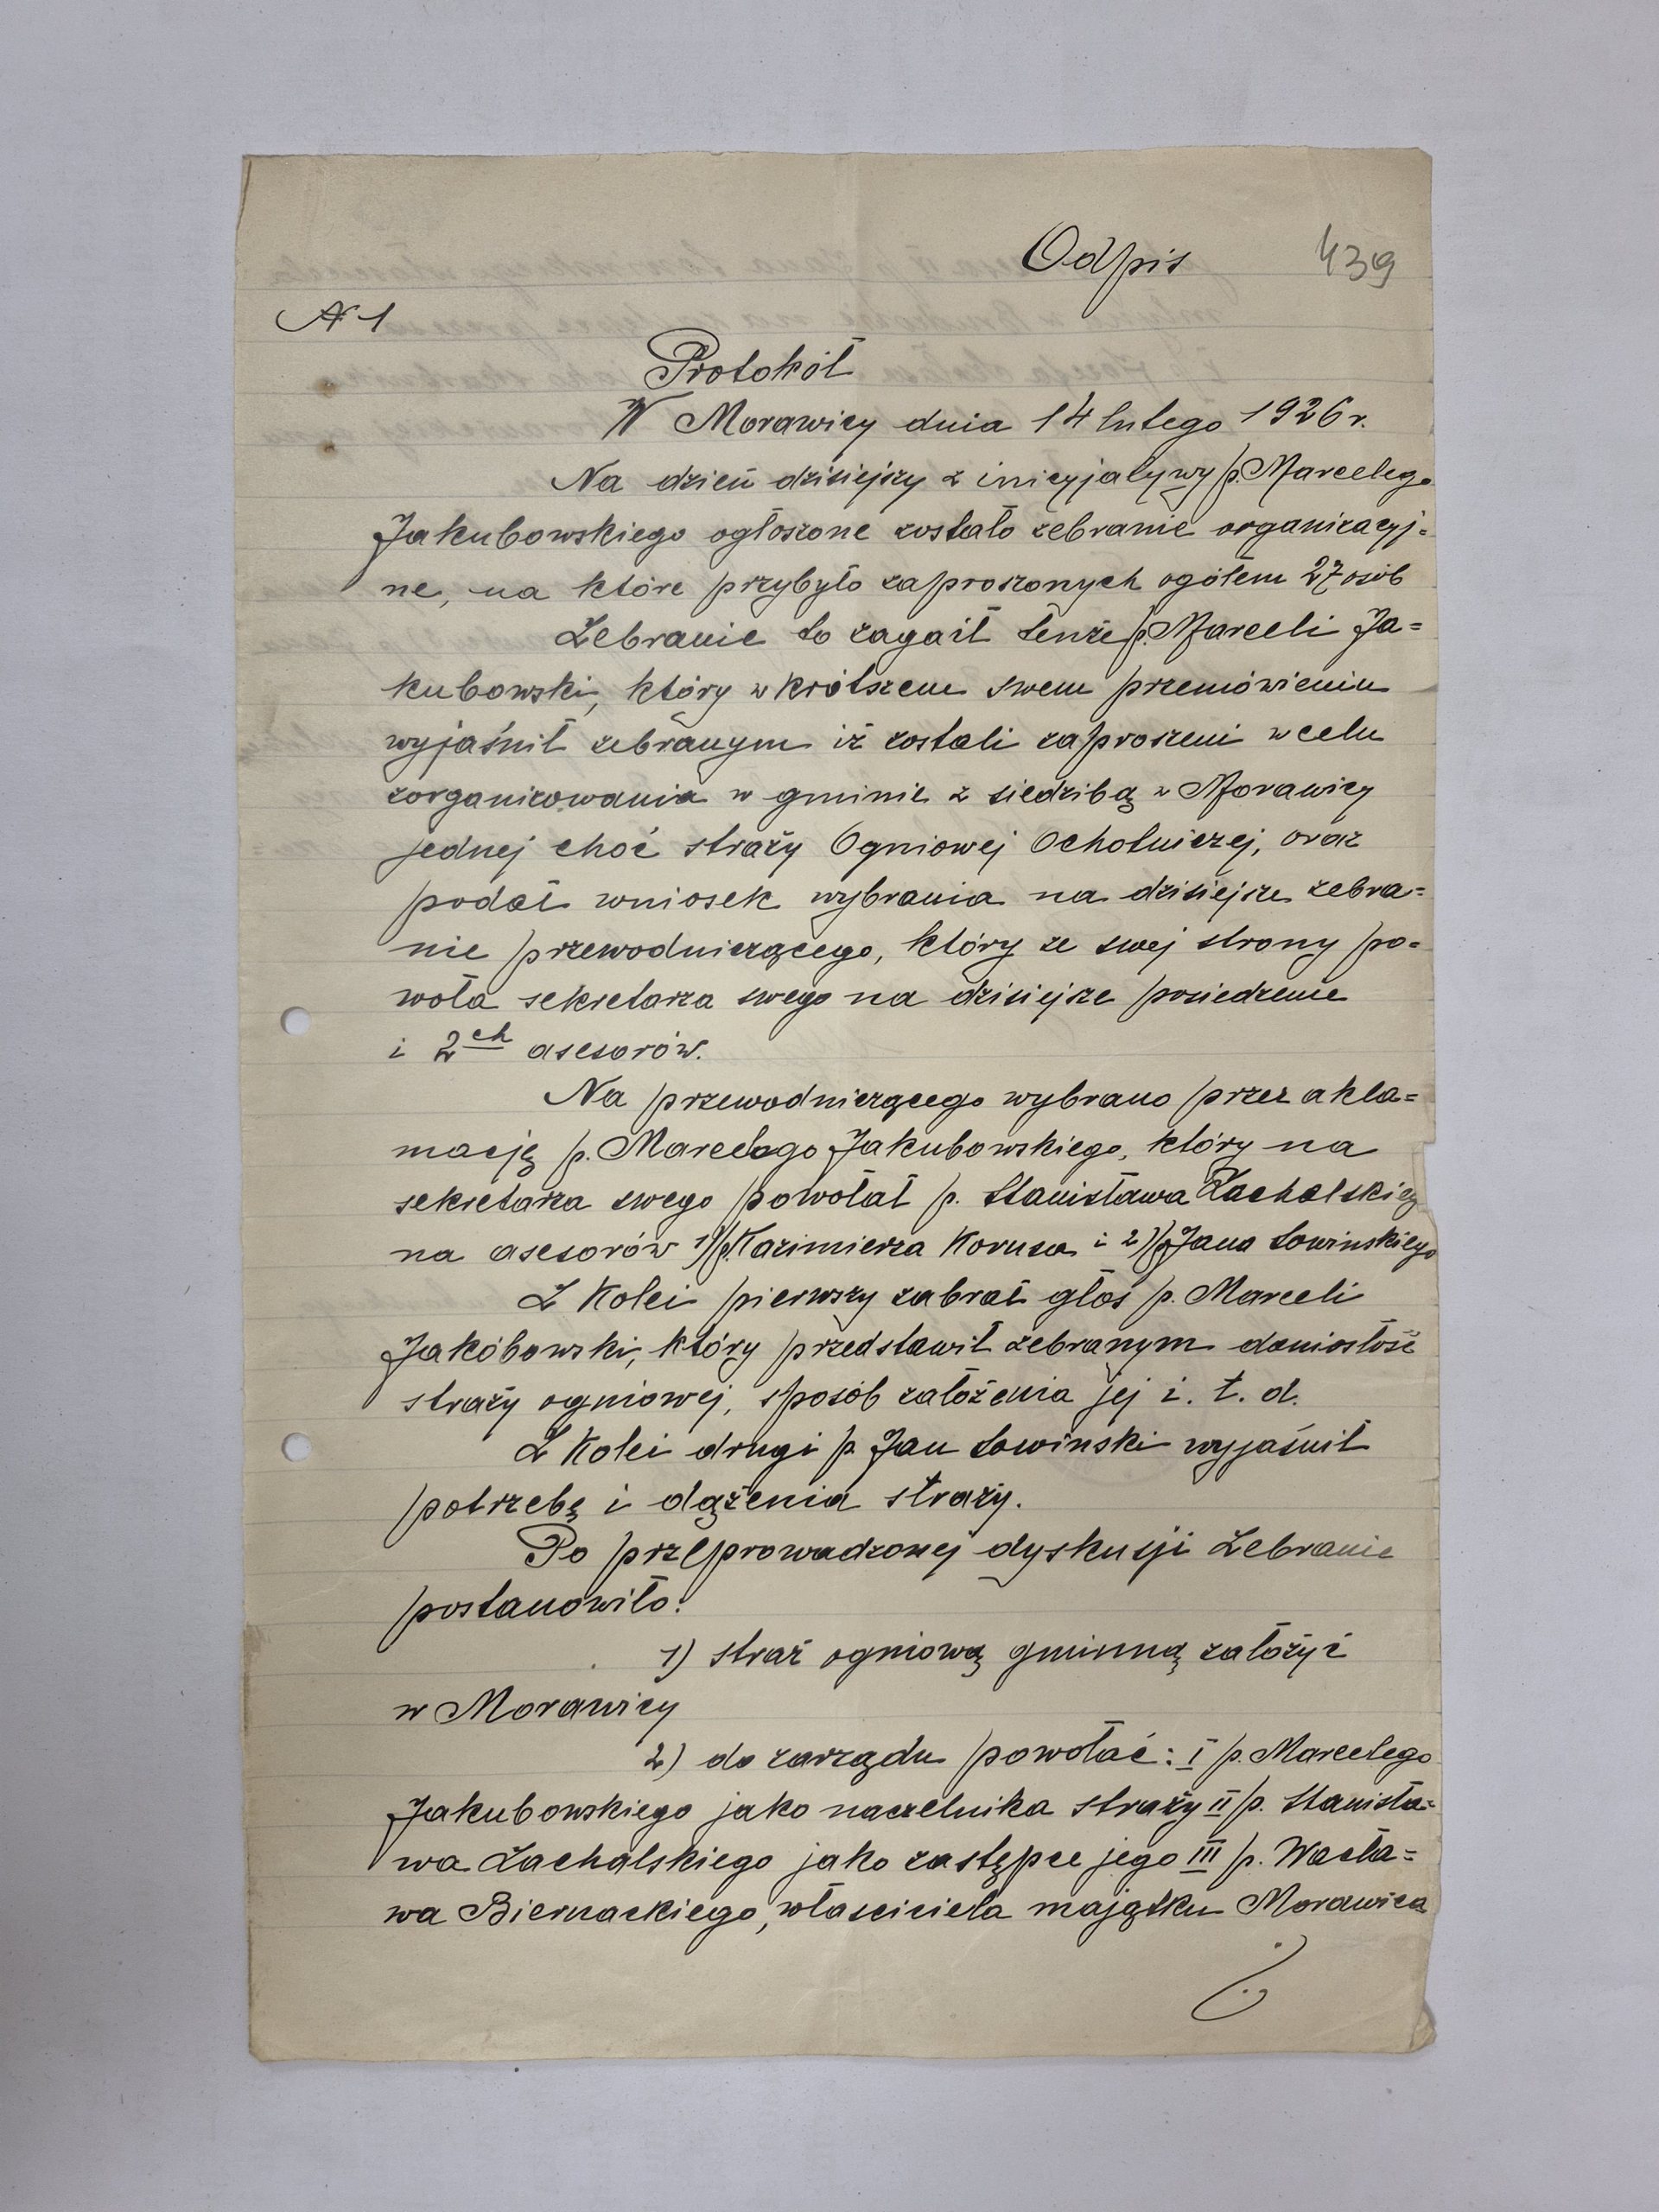 Odpis 439
№ 1
Protokół
W Morawicy dnia 14 lutego 1926 r.
Na dzień dzisiejszy z inicyjatywy p. Marcelego
Jakubowskiego ogłoszone zostało zebranie organizacyj=
ne, na które przybyło zaproszonych ogółem 27 osób
Zebranie to zagaił tenże p. Marceli Ja=
kubowski, który w krótszem swem przemówieniu
wyjaśnił zebranym iż zostali zaproszeni w celu
zorganizowania w gminie z siedzibą w Morawicy
jednej choć straży Ogniowej Ochotniczej, oraz
podał wniosek wybrania na dzisiejsze zebra=
nie przewodniczącego, który ze swej strony po=
woła sekretarza swego na dzisiejsze posiedzenie
i 2ch asesorów.
Na przewodniczącego wybrano przez akla=
mację p. Marcelego Jakubowskiego, który na
sekretarza swego powołał p. Stanisława Zachalskieg
na asesorów 1) p. Kazimierza Korusa i 2) p. Jana Łowinskiego
Z kolei pierwszy zabrał głos p. Marceli
Jakóbowski, który przedstawił zebranym doniosłość
straży ogniowej, sposób założenia jej i. t. d.
Z kolei drugi p. Jan Łowinski wyjaśnił
potrzebę i dążenia straży.
Po przeprowadzonej dyskusji Zebranie
postanowiło:
1) straż ogniową gminną założyć
w Morawicy
2) do zarządu powołać: I p. Marcelego
Jakubowskiego jako naczelnika straży II p. Stanisła=
wa Zachalskiego jako zastępce jego III p. Wacła=
wa Biernackiego, właściciela majątku Morawica